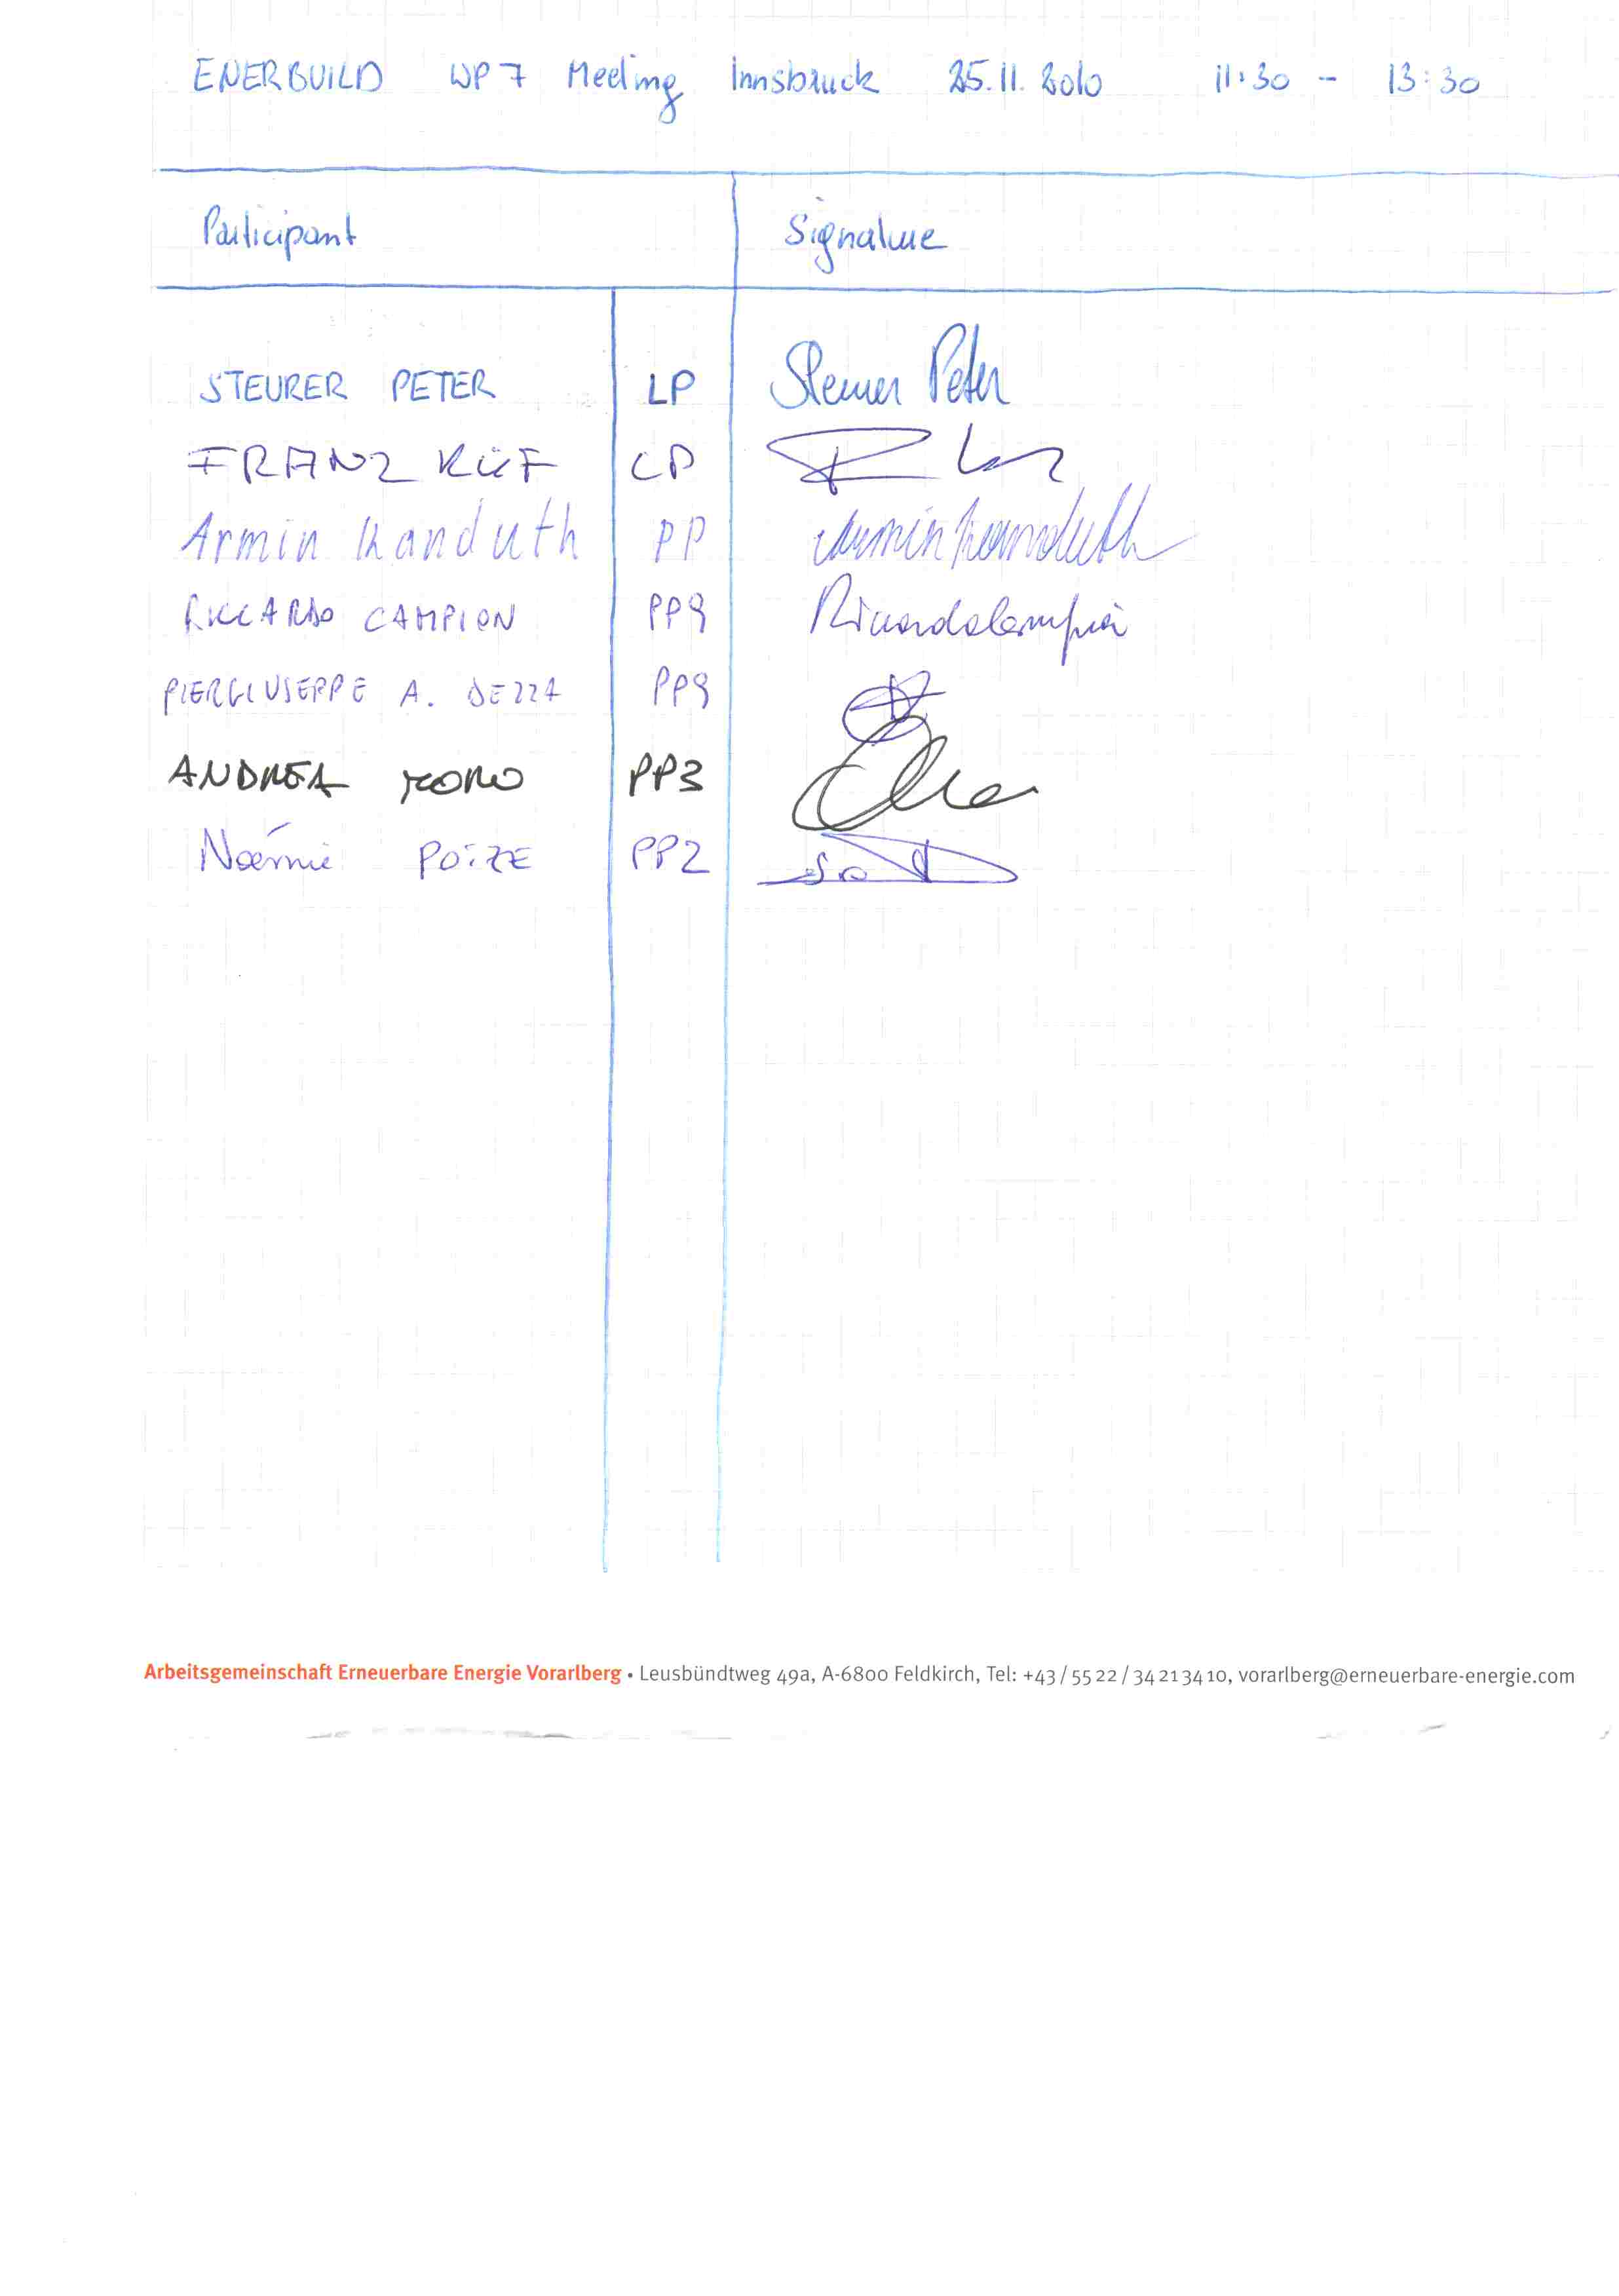 ENERBUILD WP7 Meeting Innsbruck 25.11.2010 11:30 - 13:30
Participant Signature
STEURER PETER LP Steurer Peter
FRANZ RÜF LP
Armin Kanduth PP Armin Kanduth
RICCARDO CAMPION PP9 Riccardo Campion
PIERGIUSEPPE A. DEZZA PP9
ANDREA MORO PP3
Noémie POIZE PP2
Arbeitsgemeinschaft Erneuerbare Energie Vorarlberg • Leusbündtweg 49a, A-6800 Feldkirch, Tel: +43/5522/34213410, vorarlberg@erneuerbare-energie.com